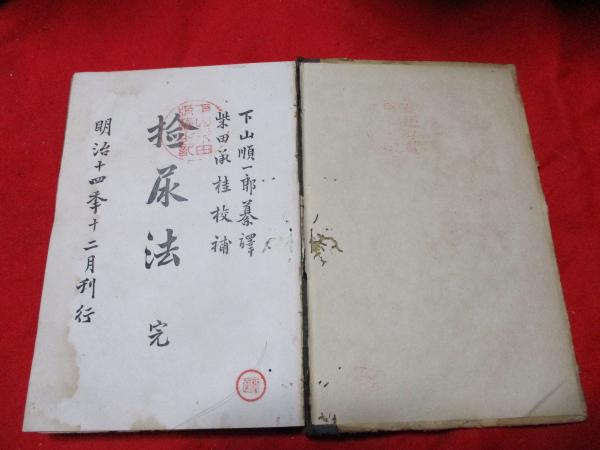 下山順一郎纂譯
柴田承桂校補
捡尿法 完
明治十四季十二月刋行